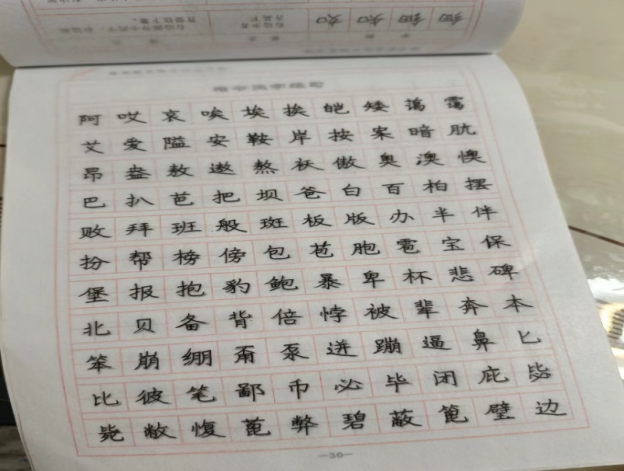 阿哎哀唉埃挨皑矮蔼霭
艾爱隘安鞍岸按案暗肮
昂盎敖遨熬袄傲奥澳懊
巴扒芭把坝爸白百柏摆
败拜班般斑板版办半伴
扮帮榜傍包苞胞雹宝保
堡报抱豹鲍暴卑杯悲碑
北贝备背倍悖被辈奔本
笨崩绷甭泵迸蹦逼鼻匕
比彼笔鄙币必毕闭庇
毙敝愎蓖弊碧蔽篦壁边
—36—